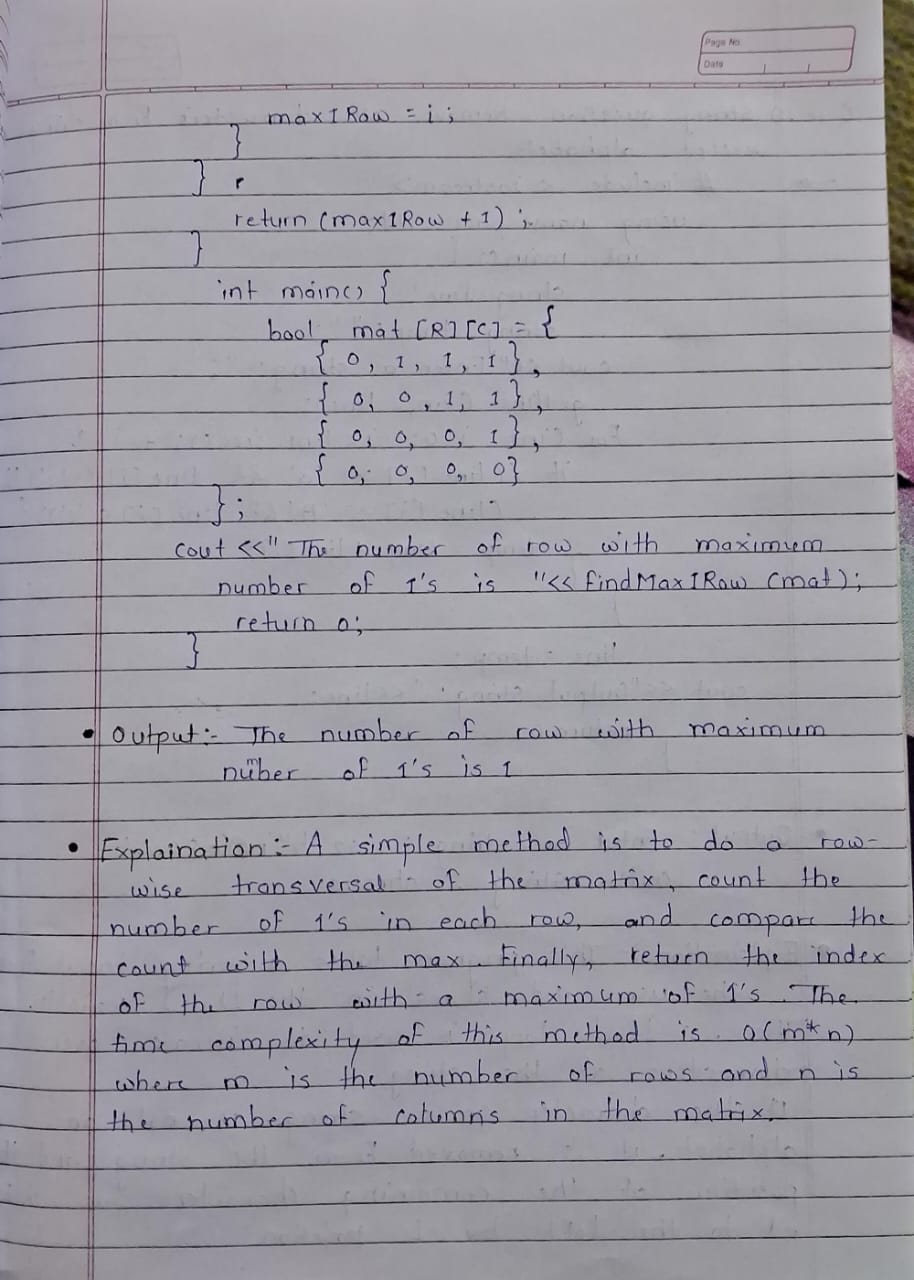 Page No
Date
max1Row = i;
}
}
return (max1Row + 1);
}
int main() {
bool mat [R][C] = {
{ 0, 1, 1, 1 },
{ 0, 0, 1, 1 },
{ 0, 0, 0, 1 },
{ 0, 0, 0, 0}
};
cout <<" The number of row with maximum
number of 1's is "<< findMax1Row (mat);
return 0;
}
• Output:- The number of row with maximum
number of 1's is 1
• Explaination:- A simple method is to do a row-
wise transversal of the matrix, count the
number of 1's in each row, and compare the
count with the max. Finally, return the index
of the row with a maximum of 1's. The
time complexity of this method is O(m*n)
where m is the number of rows and n is
the number of columns in the matrix.